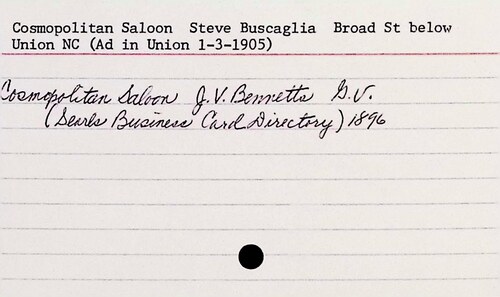 Cosmopolitan Saloon Steve Buscaglia Broad St below
Union NC (Ad in Union 1-3-1905)
Cosmopolitan Saloon J. V. Bennetts G. V.
(Searls Business Card Directory) 1896